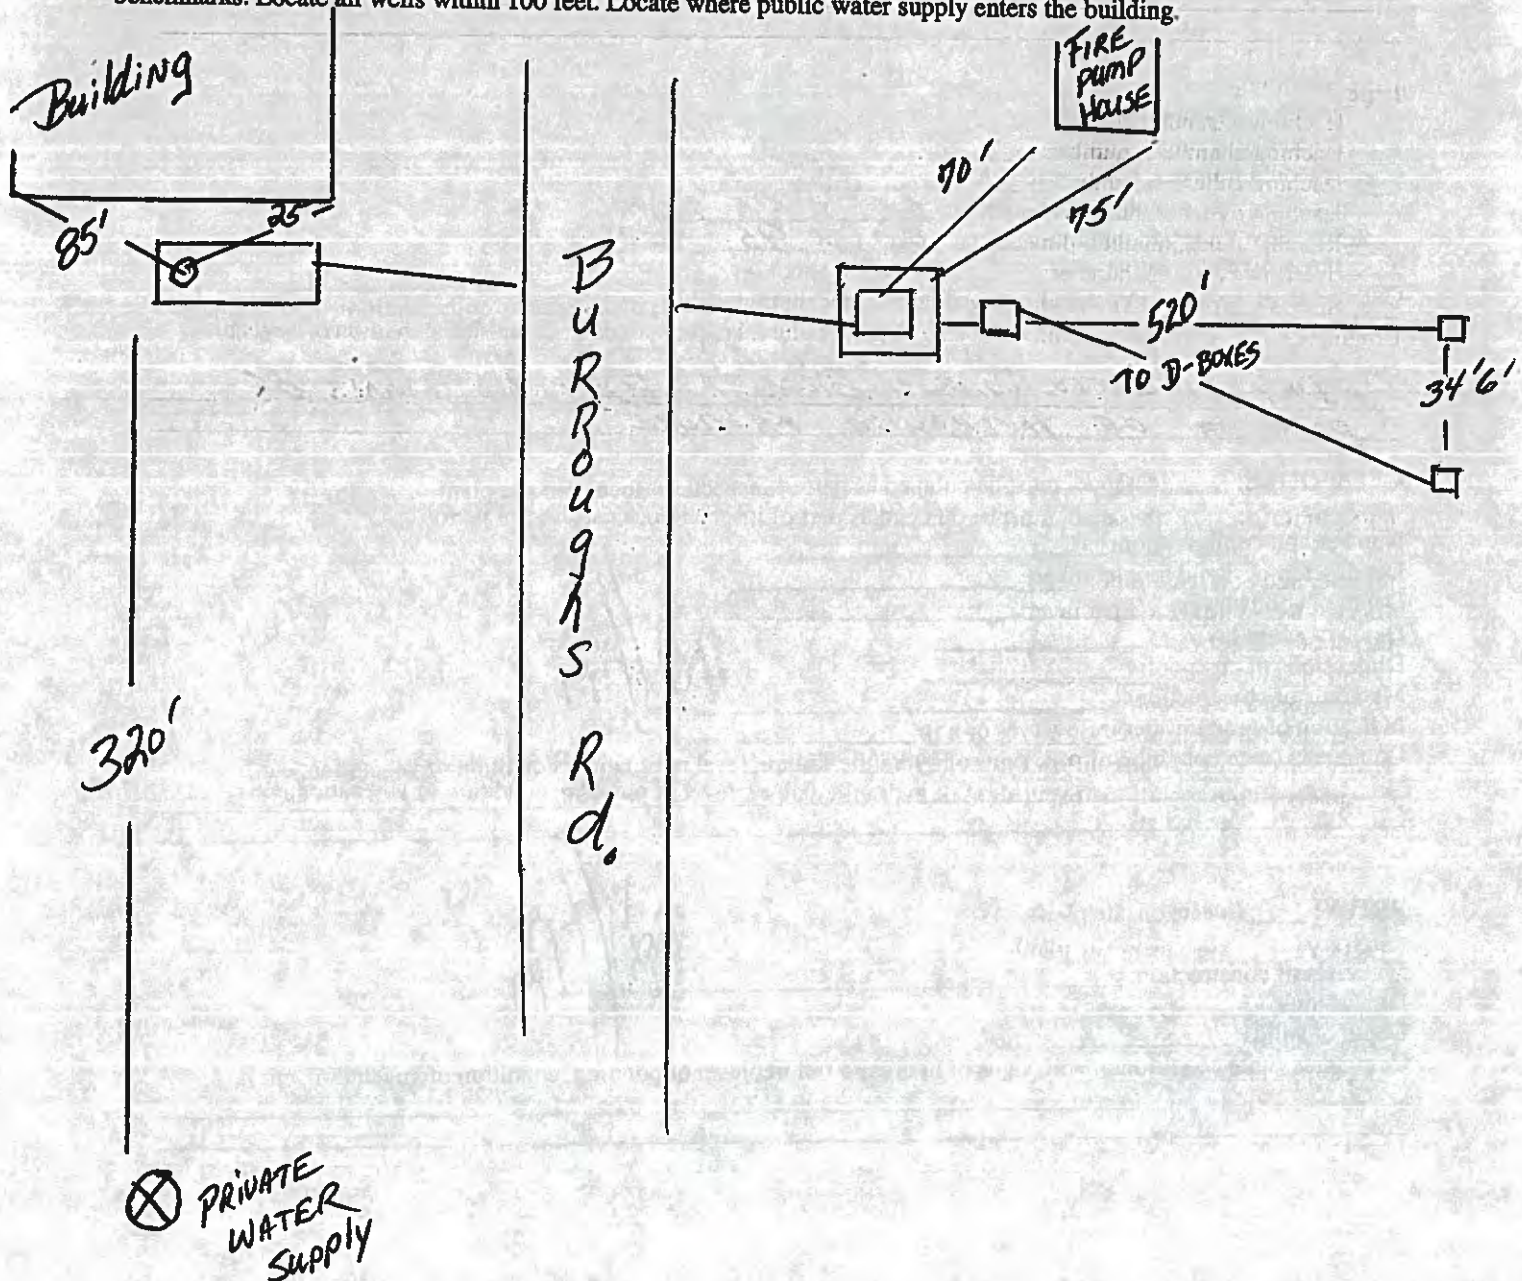 benchmarks. Locate all wells within 100 feet. Locate where public water supply enters the building.
Building
FIRE
PUMP
HOUSE
85'
25'
70'
75'
BURROughS
Rd.
520'
TO D-BOXES
34'6'
320'
PRIVATE
WATER
Supply